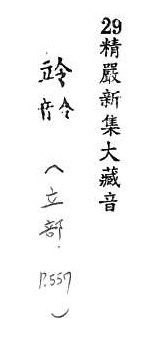 29精嚴新集大藏音
竛 音令
(立部. P.557)